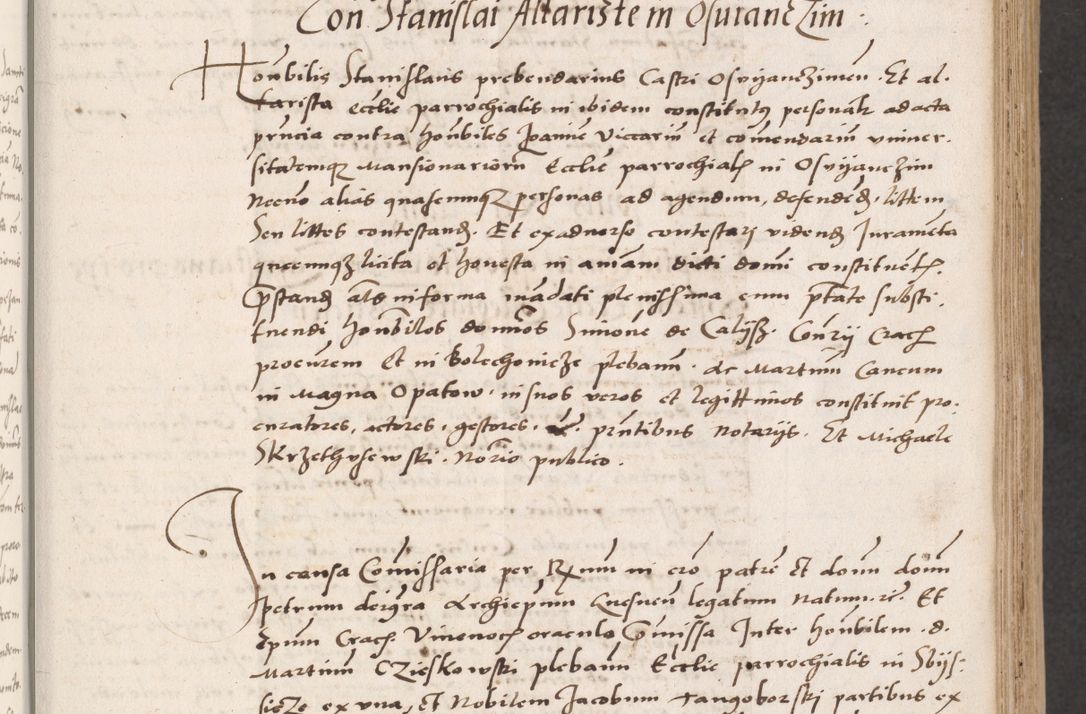 Con Stanislai Altariste in Osvianczim
Honbilis Stanislaus prebendarius Castri Osvijanczimen. Et al-
tarista ecclie parrochialis in ibidem constitutus personalr ad acta
prncia contra honbiles Joannem Viccarium et comendarium univer-
sitatemque Mansionariorum Ecclie parrochialis in Osvijanczim
Necno alias quascunque personas ad agendum, defendend. littem
Seu littes contestand. Et ex adverso contestari vidend Juramenta
quecunque licita et honesta in animam dicti domini constituentis.
prestand. ac in forma mandati plenissima cum prtate substi-
tuendi honbiles dominos Simone de Calijsz. Con​rij Crac
procurem Et in Bolechowicze plebanum. Ac Martinum Cancum
in Magna Opatow. in suos veros et legittimos constituit pro-
curatores, actores, gestores. &. prntibus Notarijs. Et Michaele
Skrzethusewski. Norio publico.
In causa Comissaria per Rxmum in cro patre et domin dominum
Petrum dei gra Archiepum Gnesnen legatum natum. re. Et
Epum Crac. Vivevocis oraculo commissa Inter honbilem. d.
Martinum Czieskowski plebanum Ecclie parrochialis in Sbijs-
sicze ex una, et Nobilem Jacobum Tangoborski partibus ex